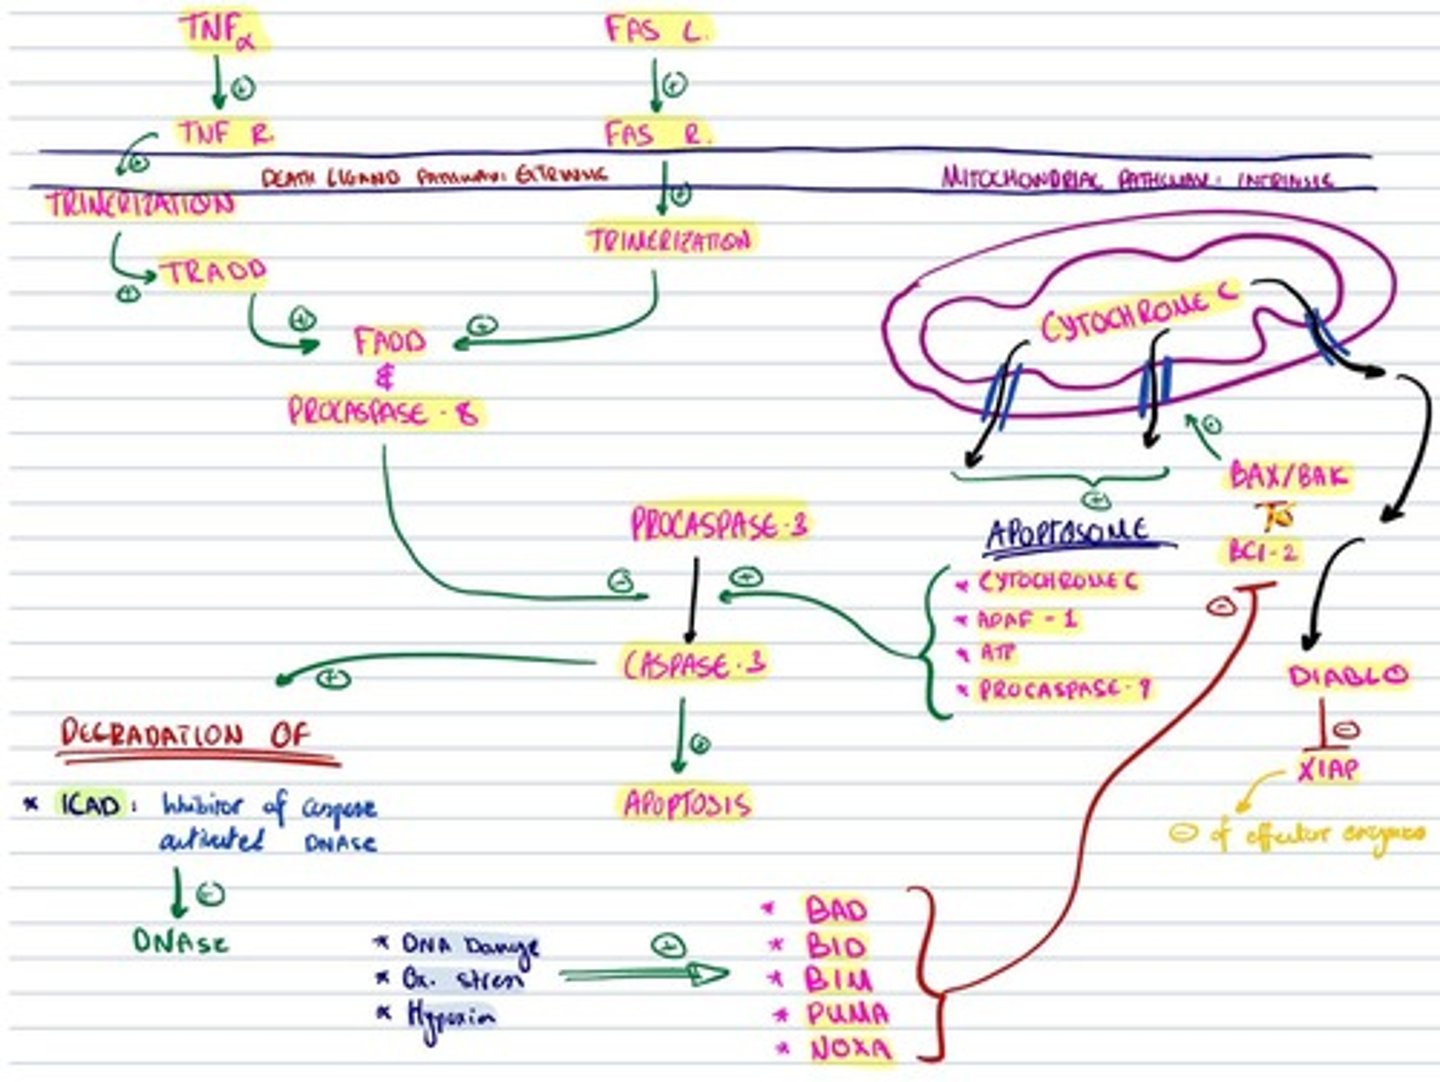 TNFα
FAS L.
TNF R.
FAS R.
DEATH LIGAND PATHWAY: EXTRINSIC
MITOCHONDRIAL PATHWAY: INTRINSIC
TRIMERIZATION
TRIMERIZATION
TRADD
CYTOCHROME C
FADD
&
PROCASPASE-8
BAX/BAK
PROCASPASE-3
APOPTOSOME
BCl-2
* CYTOCHROME C
* APAF-1
* ATP
* PROCASPASE-9
CASPASE-3
DIABLO
DEGRADATION OF
XIAP
* ICAD: Inhibitor of caspase
activated DNASE
APOPTOSIS
⊖ of effector enzymes
DNASE
* DNA Damage
* Ox. stress
* Hypoxia
* BAD
* BID
* BIM
* PUMA
* NOXA